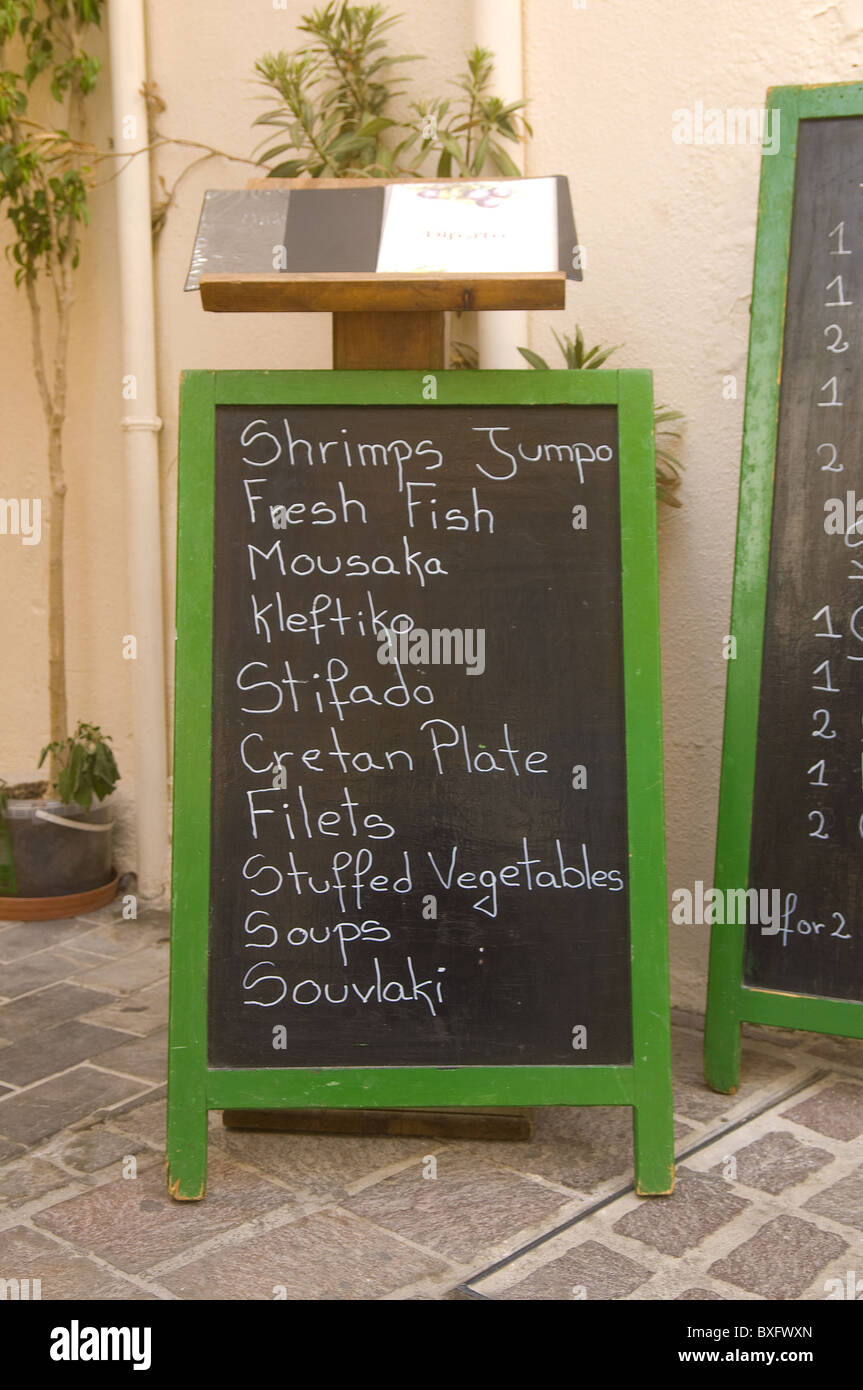 Diporto
Shrimps Jumpo
Fresh Fish
Mousaka
Kleftiko
Stifado
Cretan Plate
Filets
Stuffed Vegetables
Soups
Souvlaki
1
1
2
1
2
1
1
2
1
2
for 2
alamy
Image ID: BXFWXN
www.alamy.com